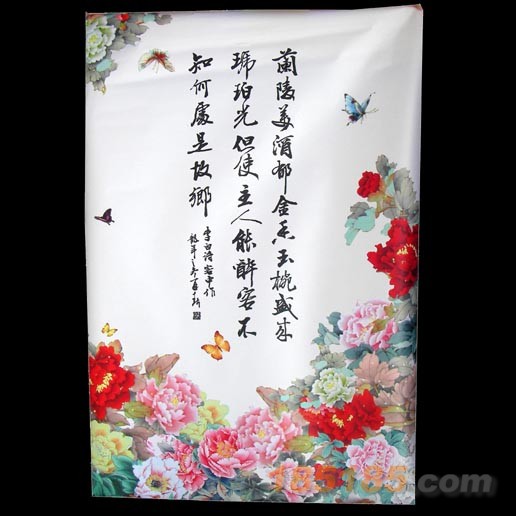 蘭陵美酒郁金香玉椀盛来
琥珀光但使主人能醉客不
知何處是故鄉
李白诗客中作
185185.com